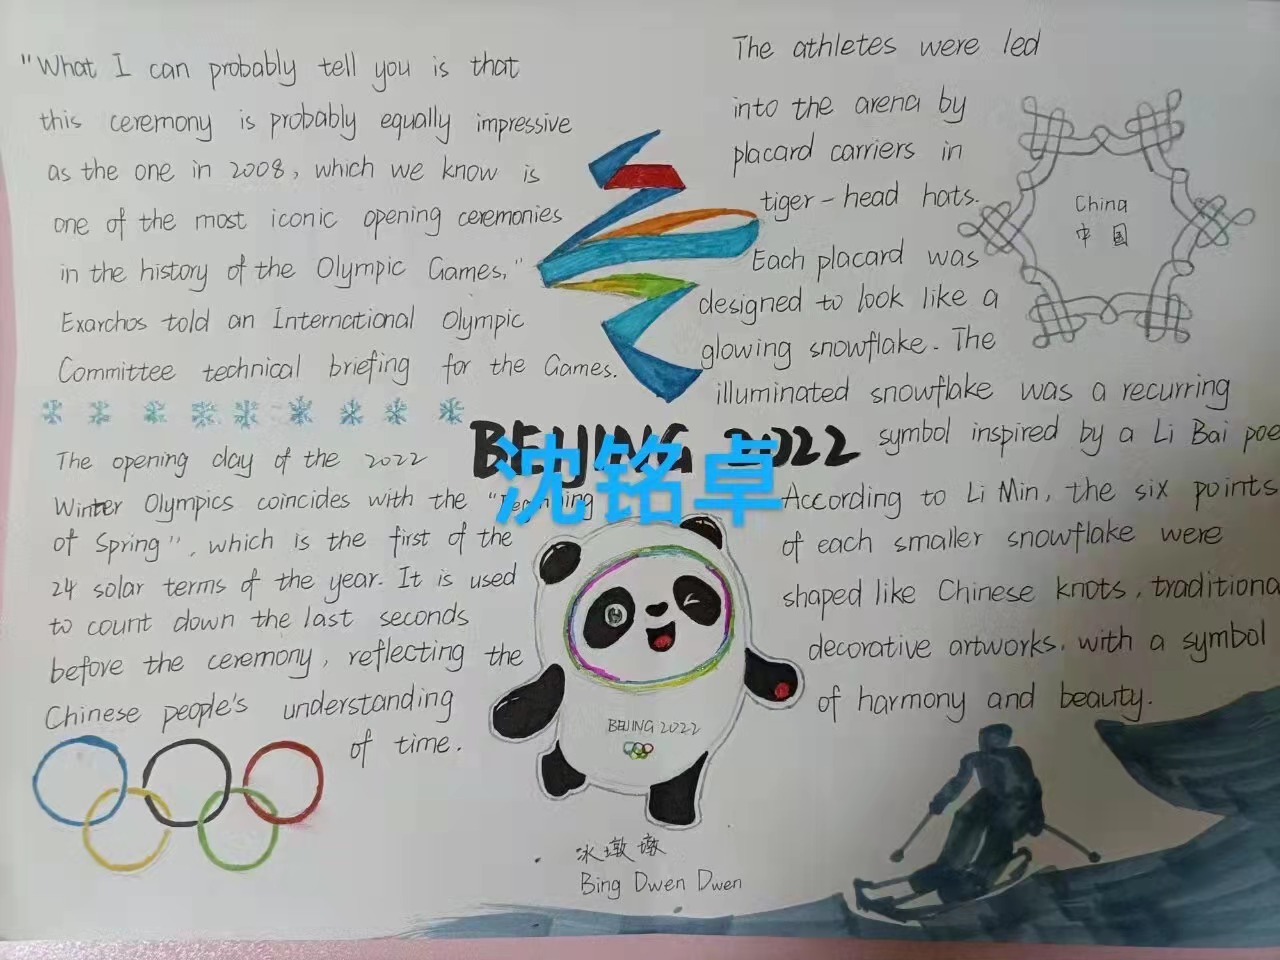 "What I can probably tell you is that
this ceremony is probably equally impressive
as the one in 2008, which we know is
one of the most iconic opening ceremonies
in the history of the Olympic Games,"
Exarchos told an International Olympic
Committee technical briefing for the Games.
The opening day of the 2022
Winter Olympics coincides with the "Beginning
of Spring", which is the first of the
24 solar terms of the year. It is used
to count down the last seconds
before the ceremony, reflecting the
Chinese people's understanding
of time.
BEIJING 2022
沈铭卓
BEIJING 2022
冰墩墩
Bing Dwen Dwen
The athletes were led
into the arena by
placard carriers in
tiger-head hats.
Each placard was
designed to look like a
glowing snowflake. The
illuminated snowflake was a recurring
symbol inspired by a Li Bai poe
According to Li Min, the six points
of each smaller snowflake were
shaped like Chinese knots, traditiona
decorative artworks, with a symbol
of harmony and beauty.
China
中国